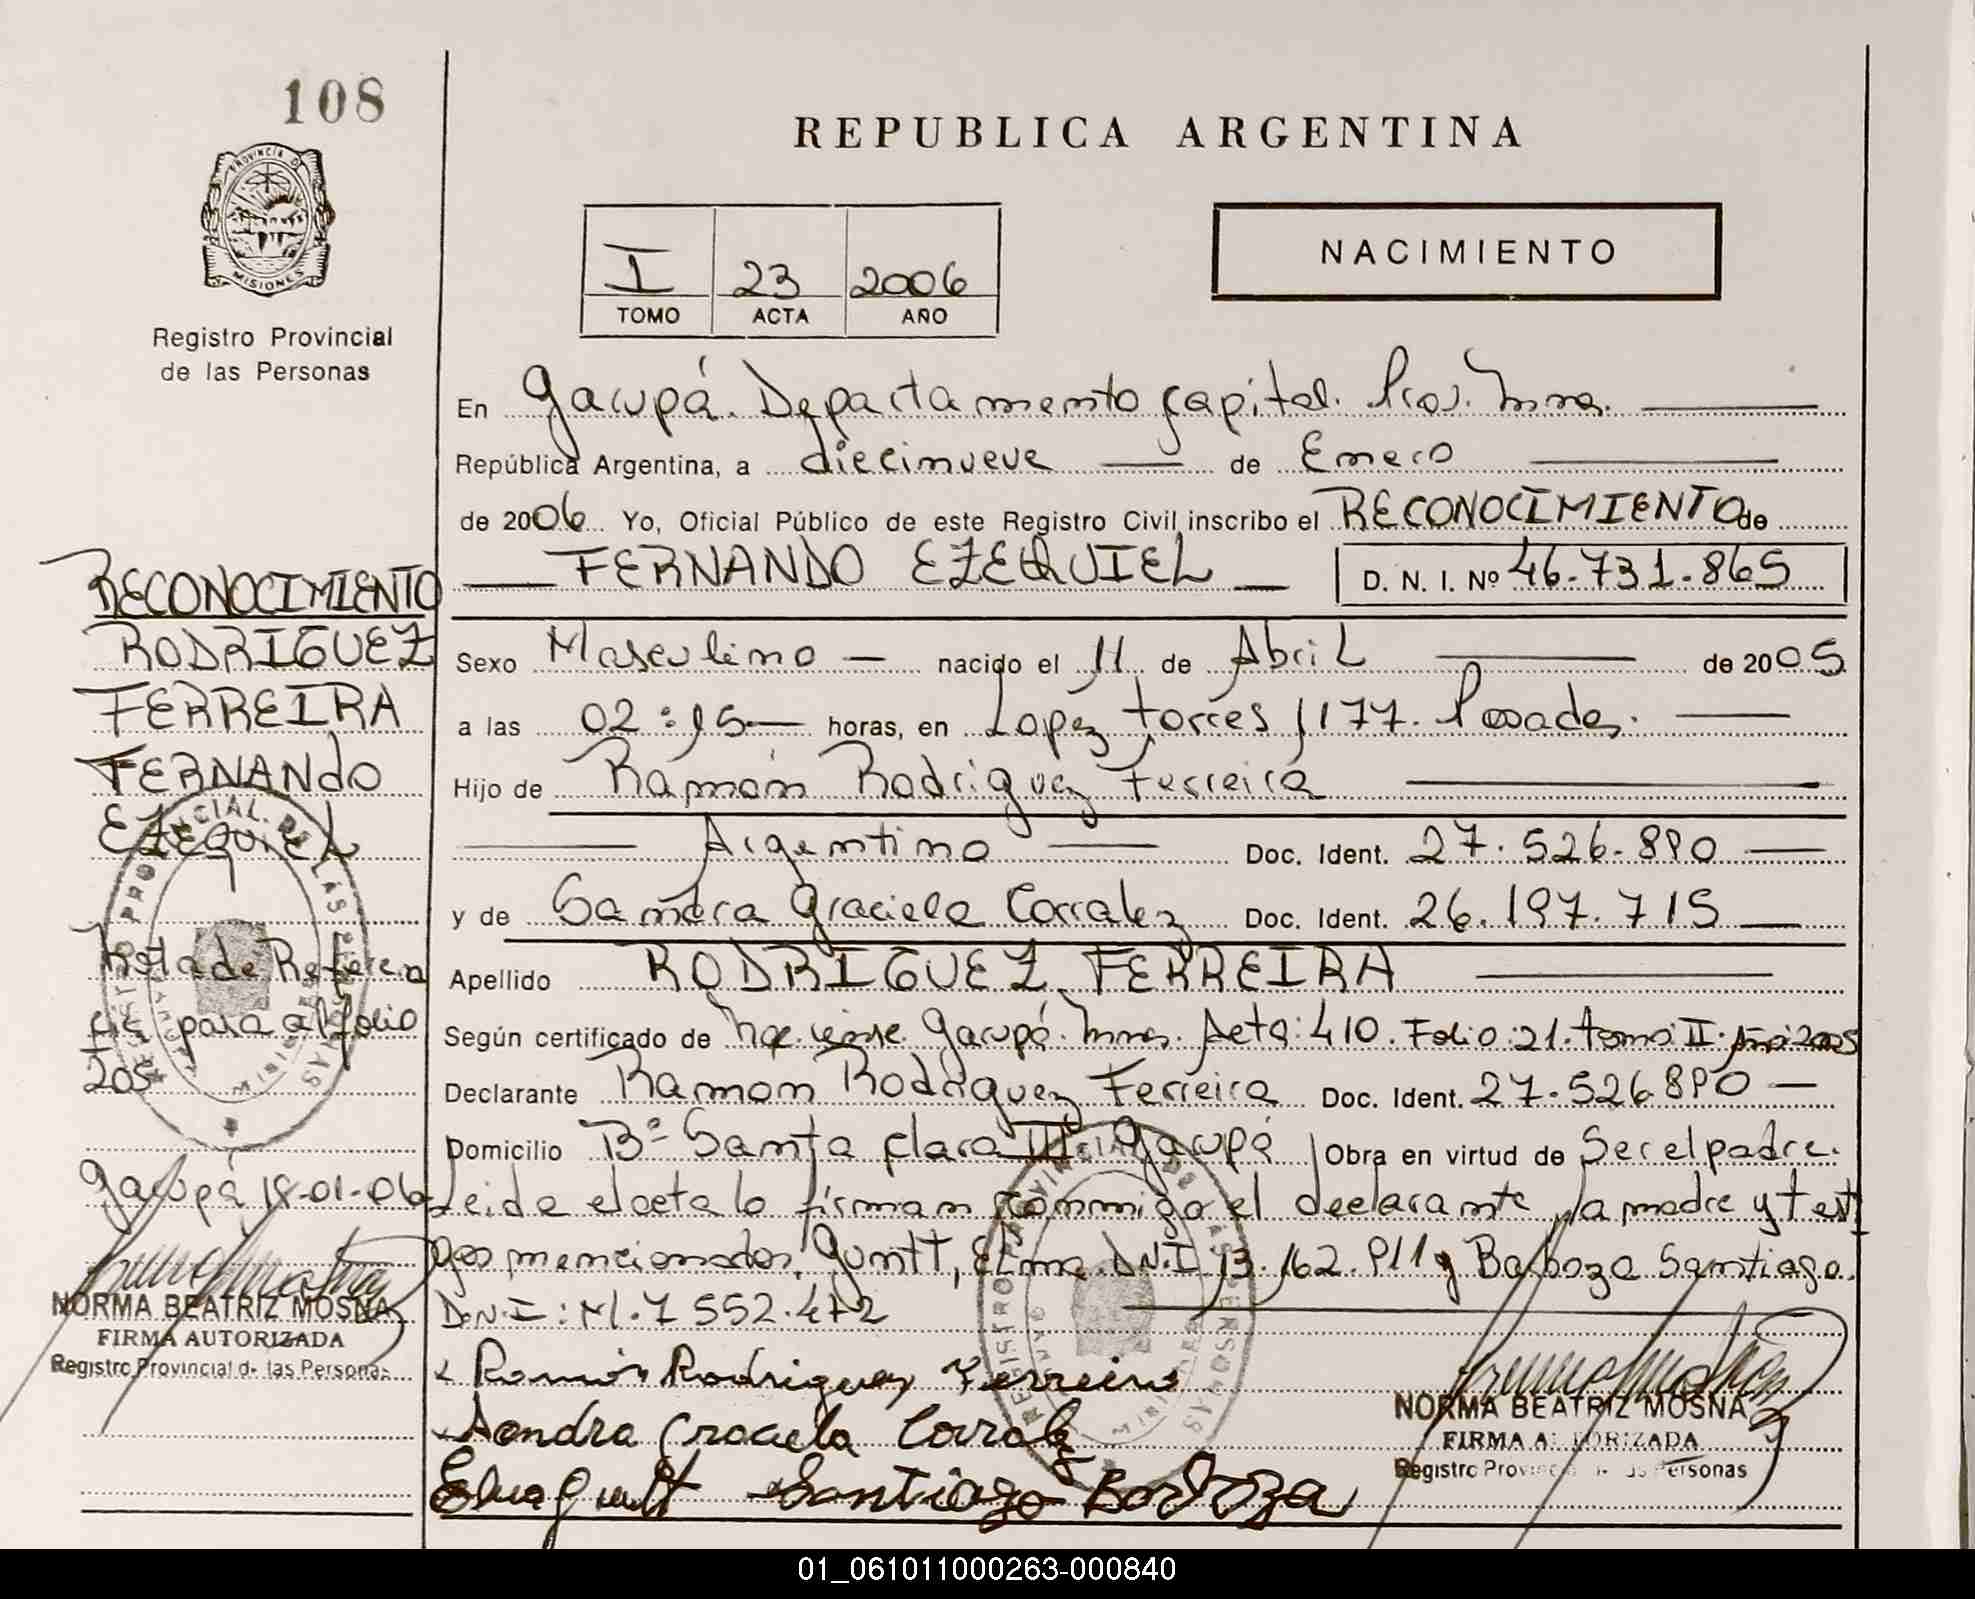 108
REPUBLICA ARGENTINA
PROVINCIA D
MISIONES
Registro Provincial
de las Personas
I 23 2006
TOMO ACTA AÑO
NACIMIENTO
En Garupá. Departamento Capital. Prov. Mnes.
República Argentina, a diecinueve de Enero
de 2006 Yo, Oficial Público de este Registro Civil inscribo el RECONOCIMIENTO de
FERNANDO EZEQUIEL D. N. I. Nº 46.731.865
Sexo Masculino nacido el 11 de Abril de 2005
a las 02:15 horas, en Lopez Torres 1177. Posadas.
Hijo de Ramón Rodriguez Ferreira
Argentino Doc. Ident. 27.526.890
y de Sandra Graciela Corralez Doc. Ident. 26.197.715
Apellido RODRIGUEZ FERREIRA
Según certificado de Garupá. Mnes. Acta: 410. Folio: 21. Tomo: II. Año: 2005
Declarante Ramón Rodriguez Ferreira Doc. Ident. 27.526.890
Domicilio Bº Santa Clara III Garupá Obra en virtud de Ser el padre.
Leida el acta la firman conmigo el declarante, la madre y testi
gos mencionados, Guntt, Elma. D.N.I 13.162.911 y Barboza Santiago.
D.N.I: M.7 552.472
Ramón Rodriguez Ferreira
Sandra Graciela Corralez
Elma Guntt Santiago Barboza
NORMA BEATRIZ MOSNA
FIRMA AUTORIZADA
Registro Provincial de las Personas
RECONOCIMIENTO
RODRIGUEZ
FERREIRA
FERNANDO
EZEQUIEL
Nota de Referen
cia para al folio
205
Garupá 18-01-06
NORMA BEATRIZ MOSNA
FIRMA AUTORIZADA
Registro Provincial de las Personas
01_061011000263-000840